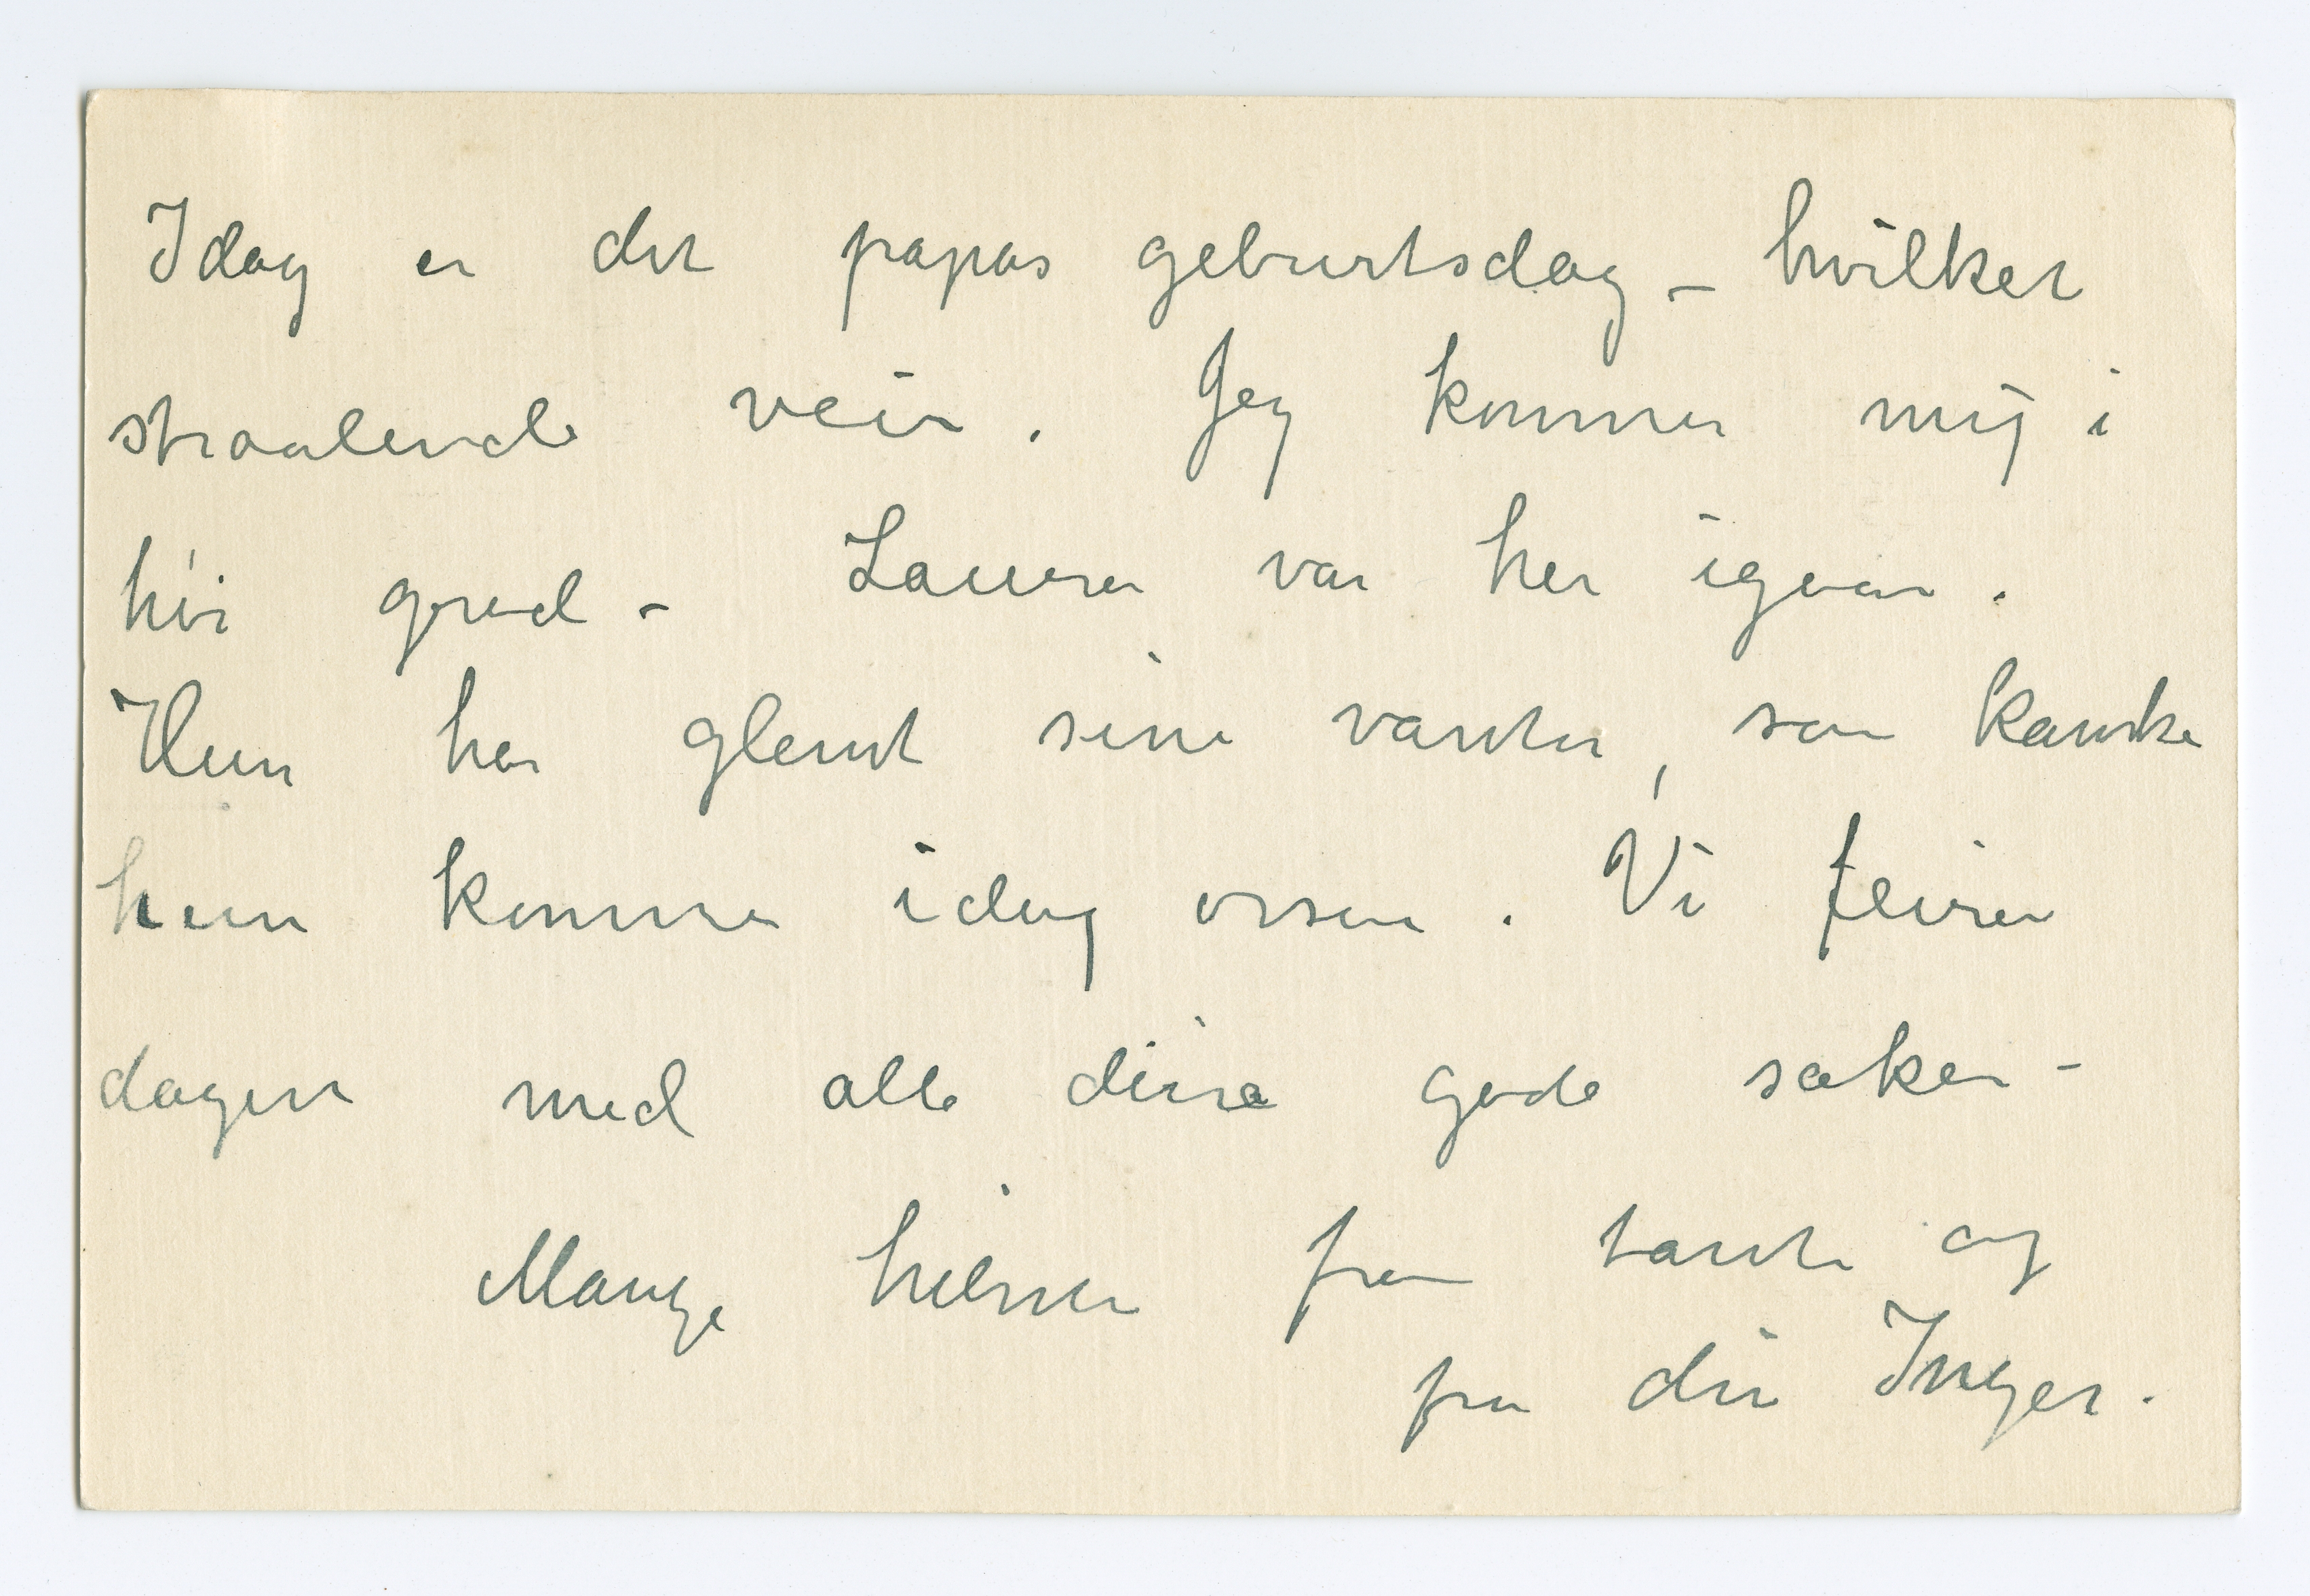 Idag er det papas geburtsdag – hvilket
straalende veir. Jeg kommer mig i
høi grad – Laura var her igaar.
Hun har glemt sine vanter, saa kanske
hun kommer idag ossaa. Vi feirer
dagen med alle disse gode saker –
Mange hilsner fra tante og
fra din Inger.